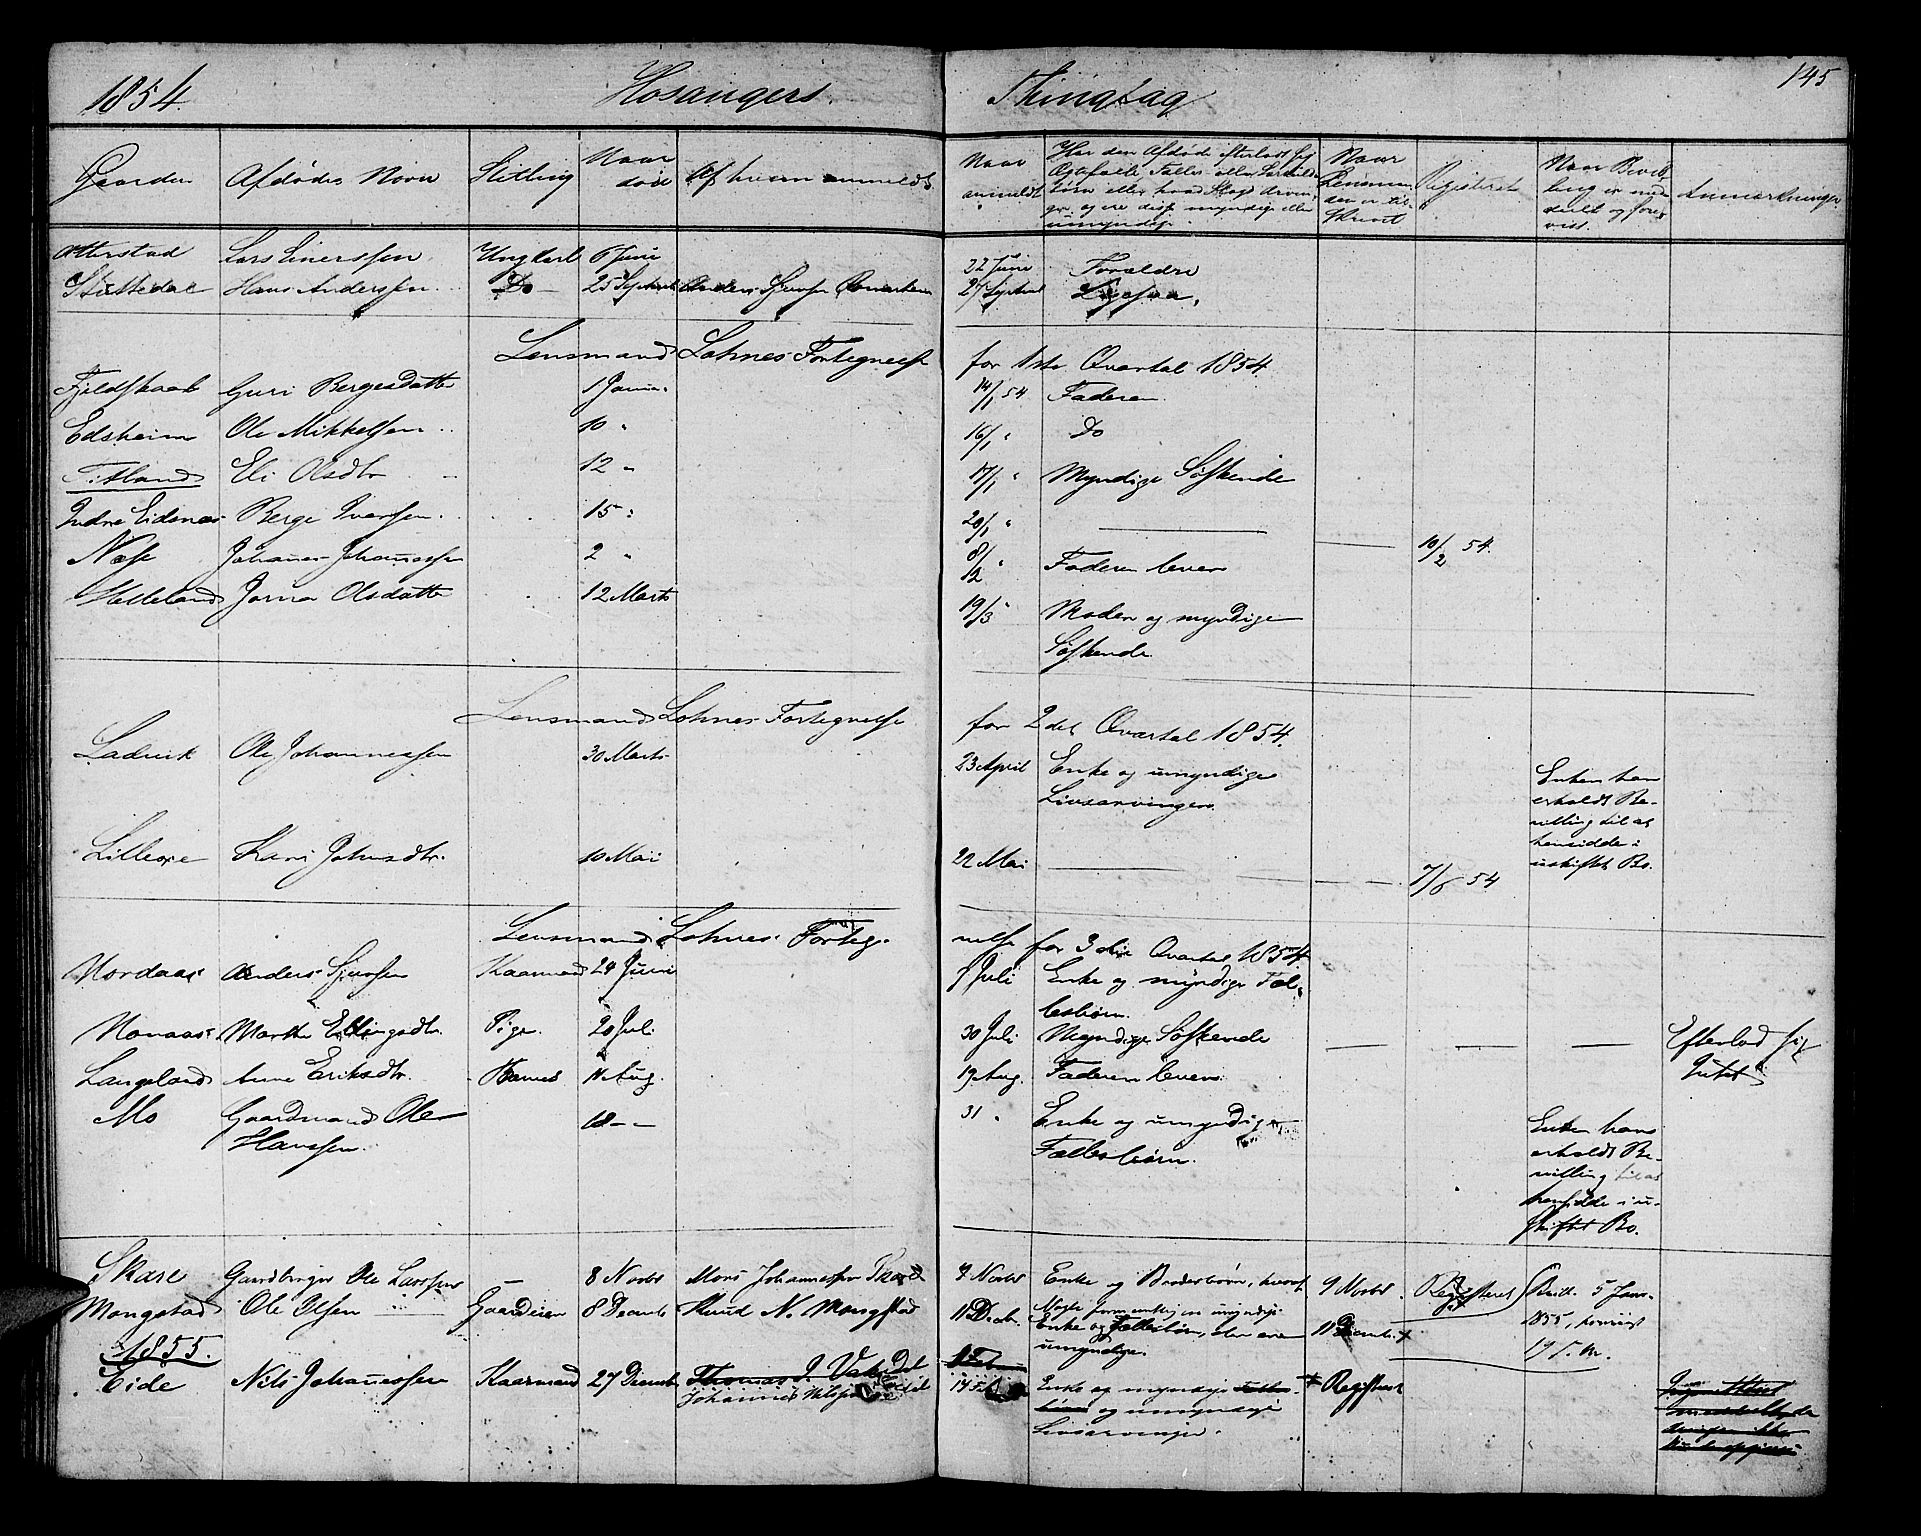 1854. Hosangers Thinglag 145
Gaarden Afdødes Navn Stilling Naar død Af hvem anmeldt Naar anmeldt Har den Afdøde efterladt sig Ægtefælle, Fælles eller Særkuldsbørn eller hvad Slags Arvinger, og ere disse myndige eller umyndige Naar Lensmanden er tilskrevet Registeret Naar Bevilling er meddeelt og forevist. Anmærkninger.
Otterstad Lars Einerssen Ungkarl 6 Juni 22 Juni Forældre
Hans Anderssen Do 25 Septbr Anders 27 Septbr Ligesaa.
Lensmand Lohnes Fortegnelse for 1ste Qvartal 1854.
Fjeldskaal Guri Bergesdatter 1 Janua. 14/1 54 Faderen
Edsheim Ole Mikkelsen 10 " 16/1 " Do
Titland Eli Olsdtr 12 " 17/1 " Myndige Søskende
Indre Eidsnes Berge Iversen 15 " 20/1 " 10/2 54.
Næse Johannes Johannessen 2 " 8/12 " Faderen lever
Helleland Jorna Olsdatter 12 Marts 19/3 " Moder og myndige
Søskende
Lensmand Lohnes Fortegnelse for 2det Qvartal 1854.
Ladvik Ole Johannessen 30 Marts 23 April Enke og umyndige
Livsarvinger. Enken har
erholdt Be-
villing til at
hensidde i
uskiftet Bo.
Kari Johnsdtr. 10 Mai 22 Mai 7/6 54
Lensmand Lohnes Forteg-
nelse for 3die Qvartal 1854
Nordaas Anders Sjursen Kaarmand 24 Juni Juli Enke og myndige Fæl-
lesbørn.
Nonaas Marthe Ellingsdtr. Pige. 20 Juli 30 Juli Myndige Søskende Efterlod sig
Intet
Langeland Anne Eriksdtr. Barnet 11 Aug. 19 Aug. Faderen lever.
Mo Gaardmand Ole
Hanssen. 18 - - 31 " Enke og umyndige
Fællesbørn. Enken have
erholdt Be-
villing til at
hensidde i u-
skiftet Bo.
Skare Gaardbruger Ole Larssen 8 Novbr Mons Johannessen Skare 9 Novbr Enke og Broderbørn, hvoraf
Nogle formentlig ere umyndige 9 Novbr. Registeret Bevill. 5 Janr.
1855,
Mongstad Ole Olsen Gaardeier 8 Decembr Knud N. Mongstad 11 Decbr. Enke og Fællesbørn, der ere
umyndige. 11 Decembr
1855.
Eide Nils Johannessen Kaarmand 27 Decembr Thomas J.
Johannes Nilsen Enke og myndige
og umyndige
Livsarvinger. Registeret